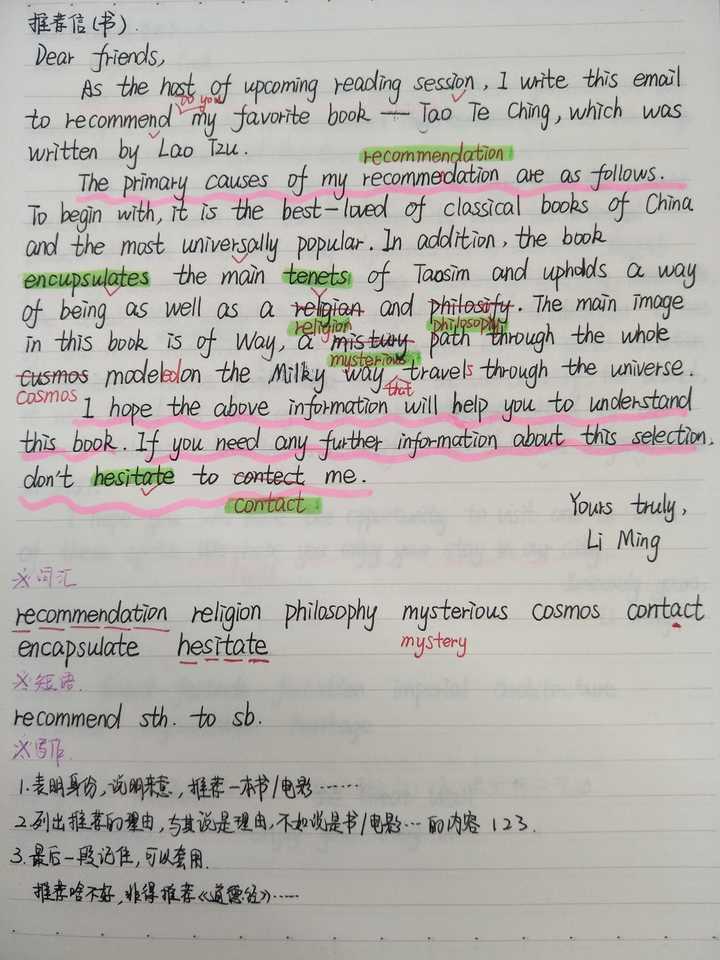 推荐信(书).
Dear friends,
As the host of upcoming reading session, I write this email
to you
to recommend my favorite book — Tao Te Ching, which was
written by Lao Tzu.
recommendation
The primary causes of my recommedation are as follows.
To begin with, it is the best-loved of classical books of China
and the most universally popular. In addition, the book
encupsulates the main tenets of Taosim and upholds a way
of being as well as a religian and philosify. The main image
religion philosophy
in this book is of Way, a mistury path through the whole
mysterious
cusmos modeled on the Milky way travels through the universe.
cosmos that
I hope the above information will help you to understand
this book. If you need any further information about this selection,
don't hesitate to contect me.
contact
Yours truly,
Li Ming
※词汇
recommendation religion philosophy mysterious cosmos contact
encapsulate hesitate mystery
※短语
recommend sth. to sb.
※写作
1.表明身份,说明来意,推荐一本书/电影……
2.列出推荐的理由,与其说是理由,不如说是书/电影…的内容 123.
3.最后一段记住,可以套用.
推荐啥不好,非得推荐《道德经》……